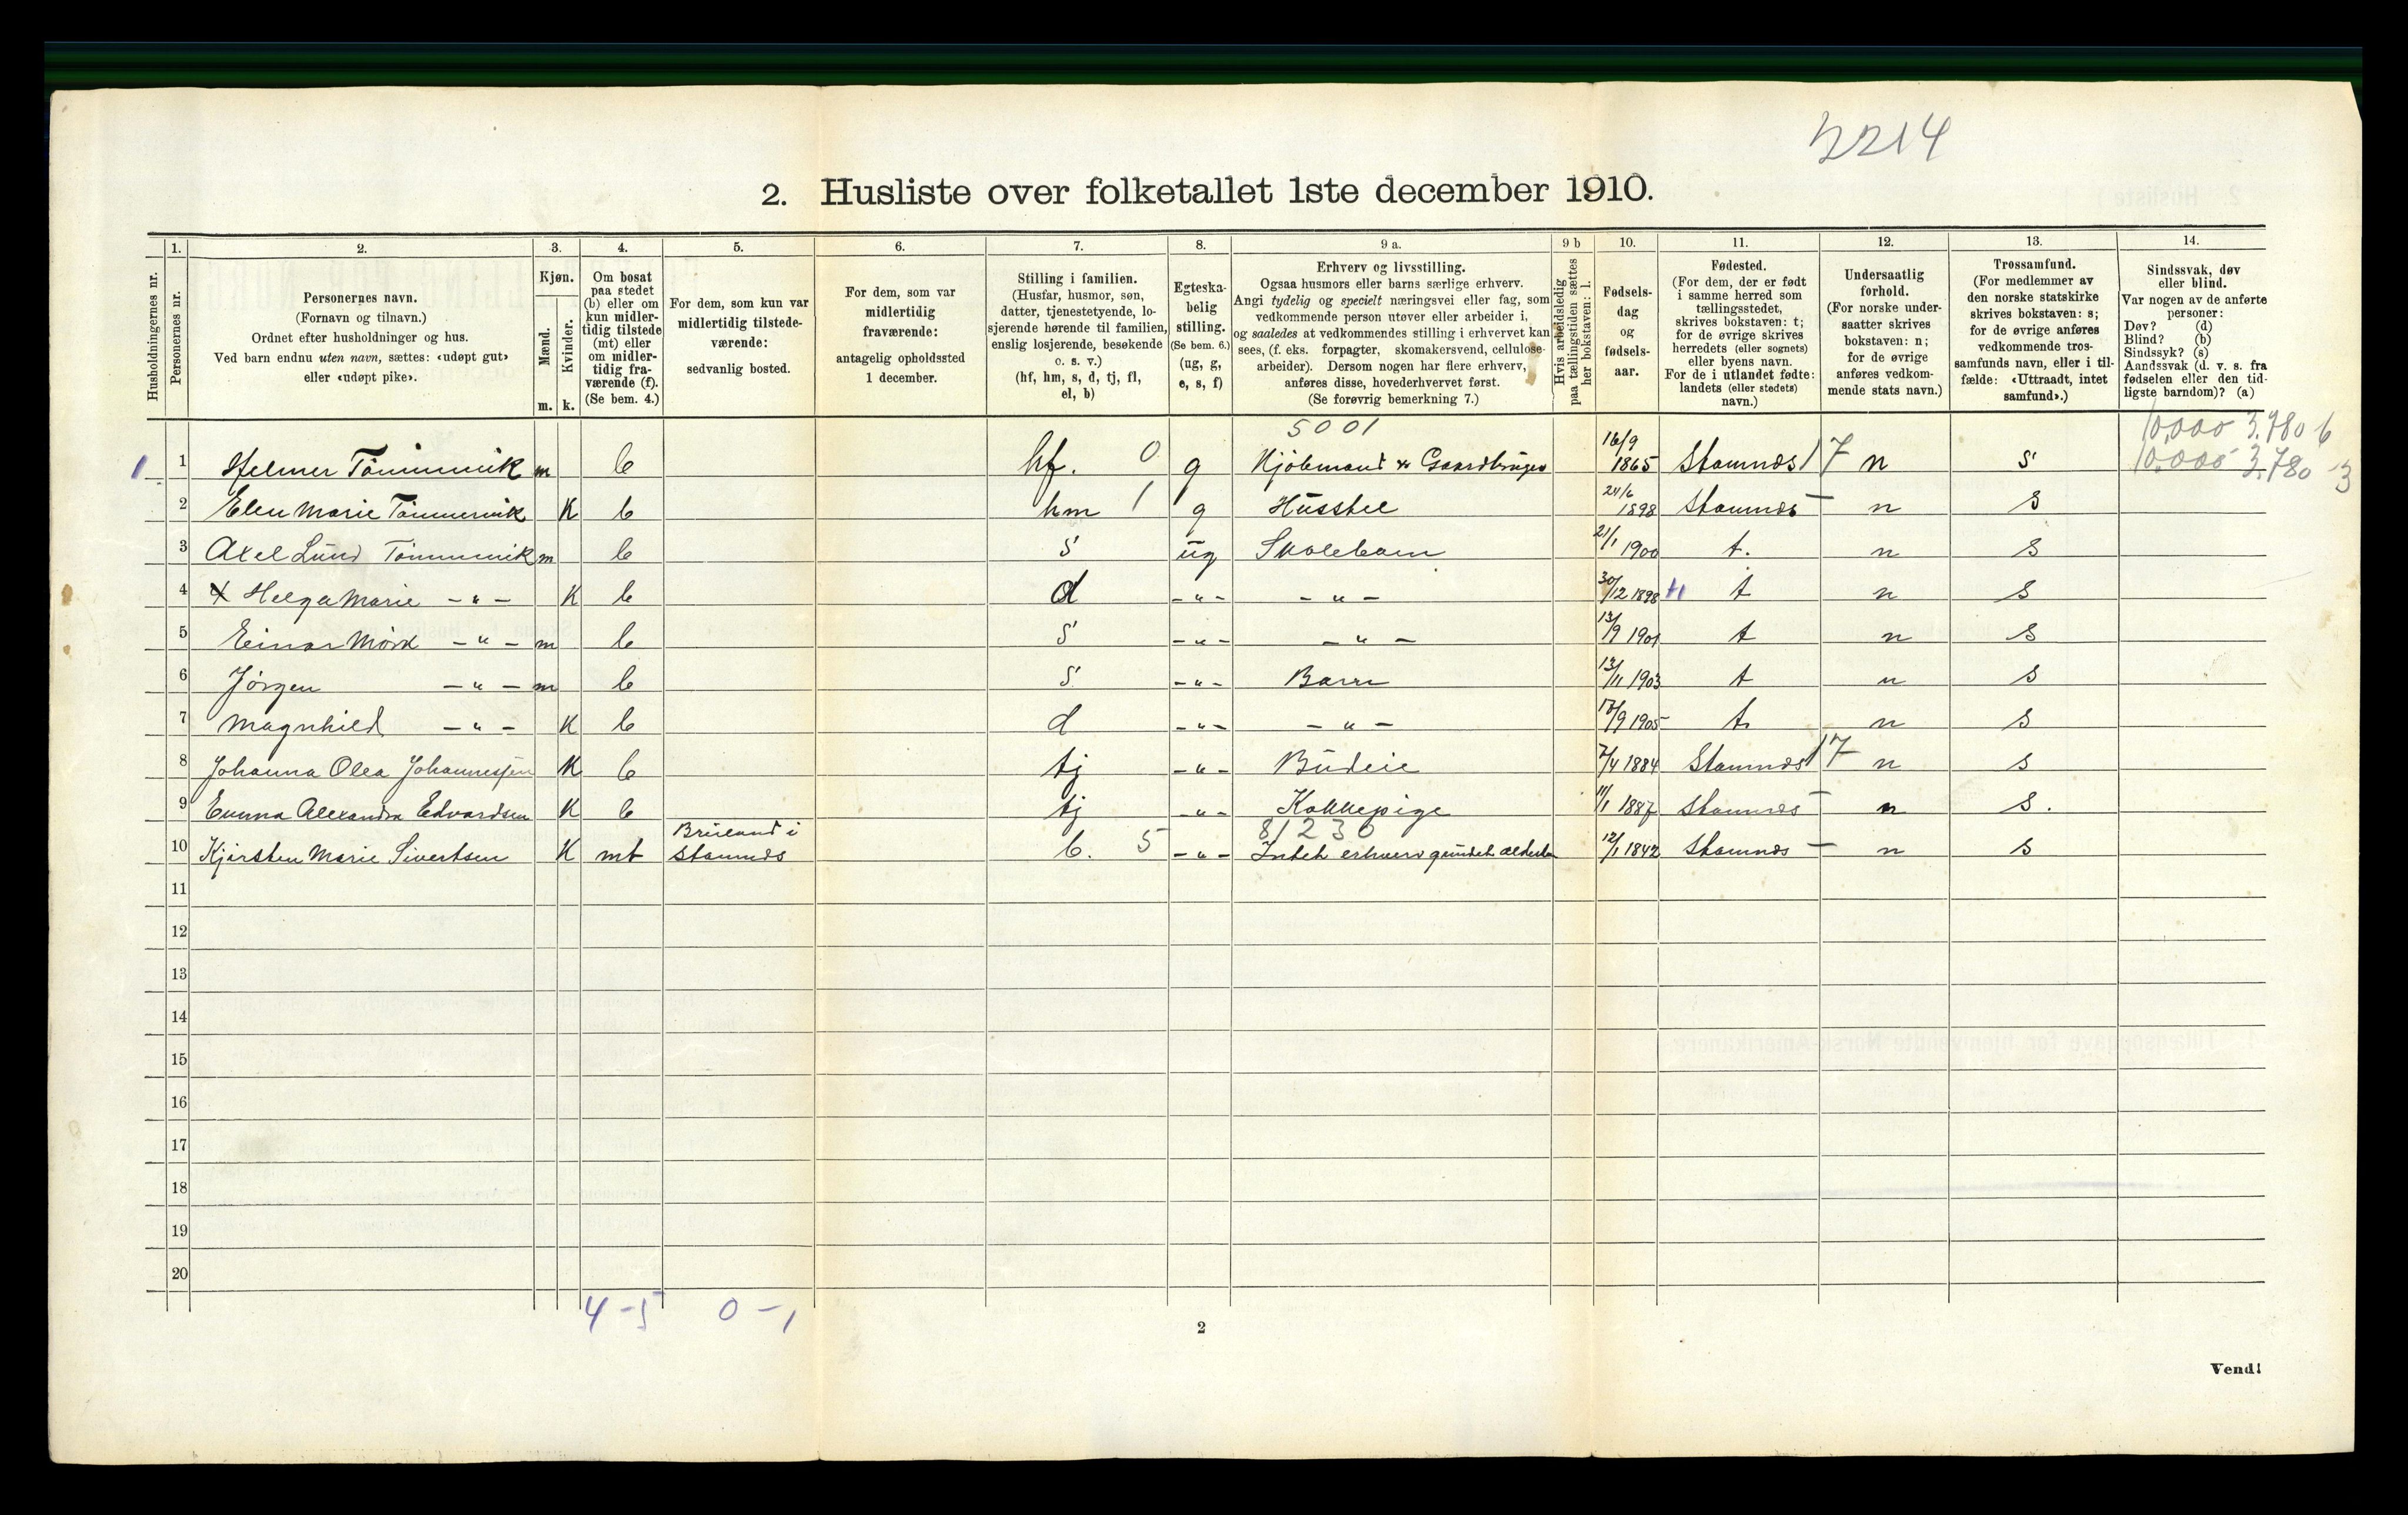 2214
2. Husliste over folketallet 1ste december 1910.
Husholdningernes nr.
1.
Personernes nr.
2.
Personernes navn.
(Fornavn og tilnavn.)
Ordnet efter husholdninger og hus.
Ved barn endnu uten navn, sættes: «udøpt gut»
eller «udøpt pike».
3.
Kjøn.
Mænd.
Kvinder.
m. k.
4.
Om bosat
paa stedet
(b) eller om
kun midler-
tidig tilstede
(mt) eller
om midler-
tidig fra-
værende (f).
(Se bem. 4.)
5.
For dem, som kun var
midlertidig tilstede-
værende:
sedvanlig bosted.
6.
For dem, som var
midlertidig
fraværende:
antagelig opholdssted
1 december.
7.
Stilling i familien.
(Husfar, husmor, søn,
datter, tjenestetyende, lo-
sjerende hørende til familien,
enslig losjerende, besøkende
o. s. v.)
(hf, hm, s, d, tj, fl,
el, b)
8.
Egteska-
belig
stilling.
(Se bem. 6.)
(ug, g,
e, s, f)
9 a.
Erhverv og livsstilling.
Ogsaa husmors eller barns særlige erhverv.
Angi tydelig og specielt næringsvei eller fag, som
vedkommende person utøver eller arbeider i,
og saaledes at vedkommendes stilling i erhvervet kan
sees, (f. eks. forpagter, skomakersvend, cellulose-
arbeider). Dersom nogen har flere erhverv,
anføres disse, hovederhvervet først.
(Se forøvrig bemerkning 7.)
9 b
Hvis arbeidsledig
paa tællingstiden sættes
her bokstaven: l.
10.
Fødsels-
dag
og
fødsels-
aar.
11.
Fødested.
(For dem, der er født
i samme herred som
tællingsstedet,
skrives bokstaven: t;
for de øvrige skrives
herredets (eller sognets)
eller byens navn.
For de i utlandet fødte:
landets (eller stedets)
navn.)
12.
Undersaatlig
forhold.
(For norske under-
saatter skrives
bokstaven: n;
for de øvrige
anføres vedkom-
mende stats navn.)
13.
Trossamfund.
(For medlemmer av
den norske statskirke
skrives bokstaven: s;
for de øvrige anføres
vedkommende tros-
samfunds navn, eller i til-
fælde: «Uttraadt, intet
samfund».)
14.
Sindssvak, døv
eller blind.
Var nogen av de anførte
personer:
Døv? (d)
Blind? (b)
Sindssyk? (s)
Aandssvak (d. v. s. fra
fødselen eller den tid-
ligste barndom)? (a)
5001 10,000 3,780 6
1 1 Helmer Tömmervik m b hf. 0 g Kjöbmand & Gaardbruger 16/9 1865 Stamnæs 17 n s 10,000 3,780 -3
2 Elen Marie Tömmervik K b hm 1 g Husstel 1898 Stamnæs — n s
3 Axel Lund Tömmervik m b s ug Skolebarn 21/1 1900 t. n s
4 x Helga Marie - " - K b d - " - - " - 30/12 1898 t n s
5 Einar Mörk - " - m b s - " - - " - 13/9 1901 t n s
6 Jörgen - " - m b s - " - Barn 13/11 1903 t n s
7 Magnhild - " - K b d - " - - " - /9 1905 t. n s
8 Johanna Olea Johannessen K b tj - " - Budeie 7/4 1884 Stamnæs 17 n s
9 Emma Alexandra Edvardsen K b tj - " - Kokkepige 11/1 1887 Stamnæs — n s.
81230
10 Kjersten Marie Sivertsen K mt Breiland i Stamnæs b. 5 - " - Intet erhverv 12/1 1842 Stamnæs — n s
11
12
13
14
15
16
17
18
19
20
4-5 0-1
2
Vend!